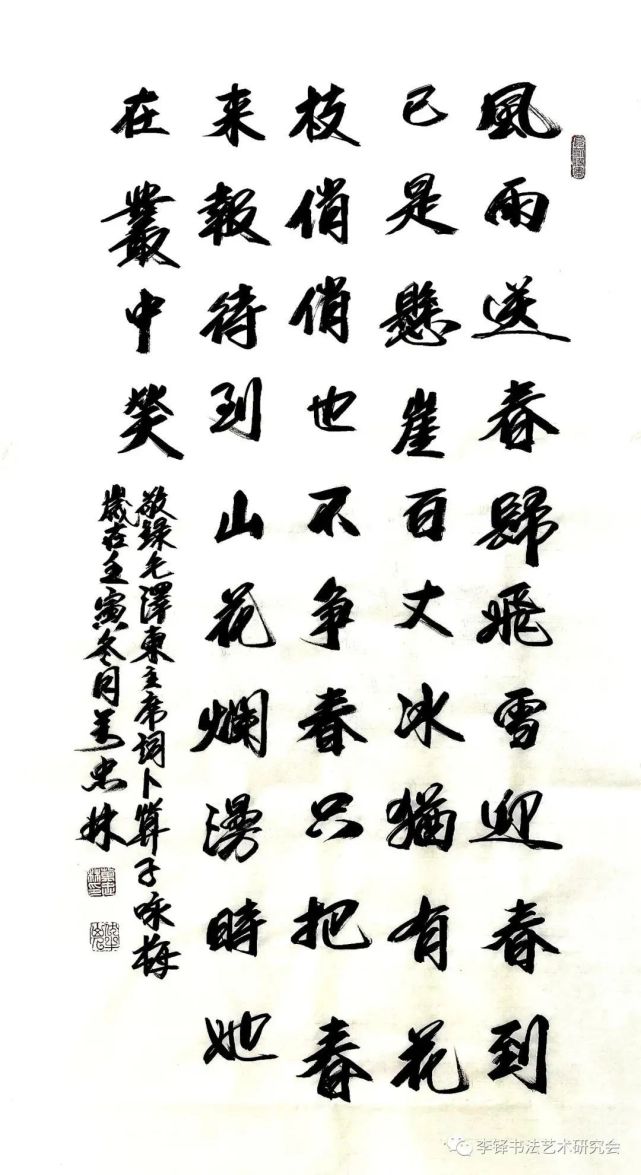 風雨送春歸飛雪迎春到
已是懸崖百丈冰猶有花
枝俏俏也不争春只把春
来報待到山花爛漫時她
在叢中笑
敬録毛澤東主席詞卜算子咏梅
歲在壬寅冬月萬忠林
李铎书法艺术研究会